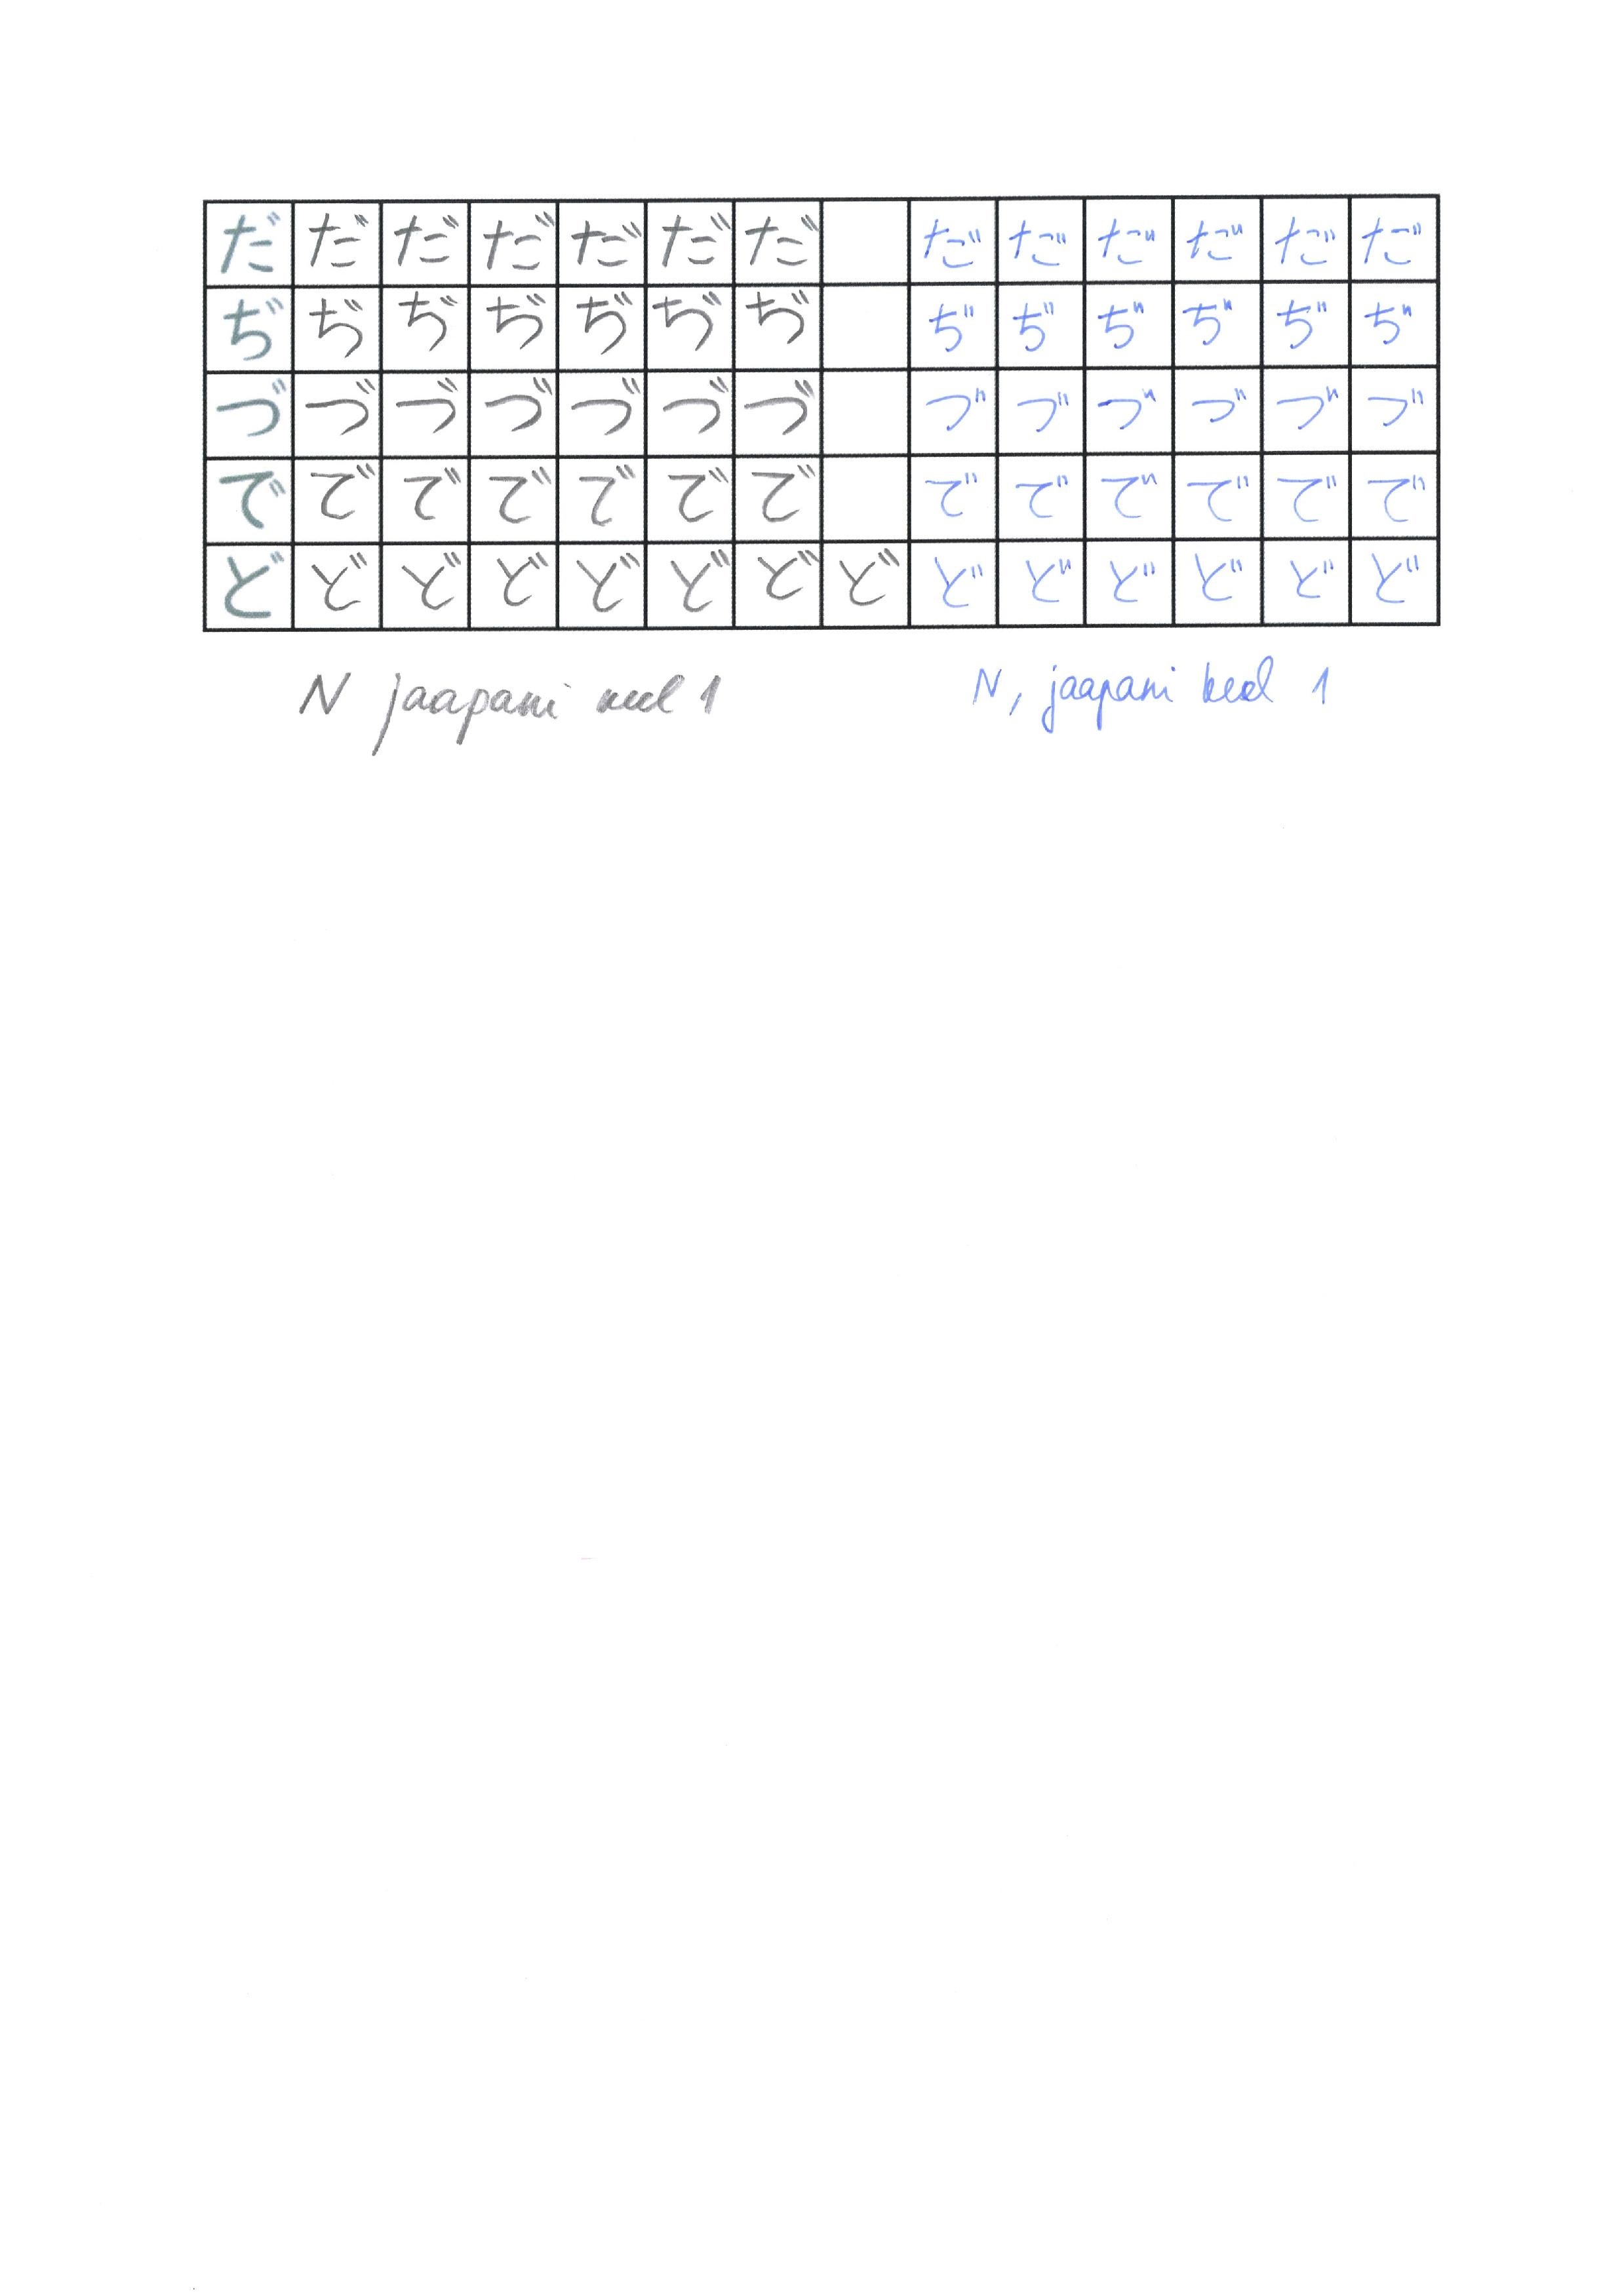 だ だ だ だ だ だ だ だ だ だ だ だ だ
ぢ ぢ ぢ ぢ ぢ ぢ ぢ ぢ ぢ ぢ ぢ ぢ ぢ
づ づ づ づ づ づ づ づ づ づ づ づ づ
で で で で で で で で で で で で で
ど ど ど ど ど ど ど ど ど ど ど ど ど ど
N jaapani keel 1 N, jaapani keel 1